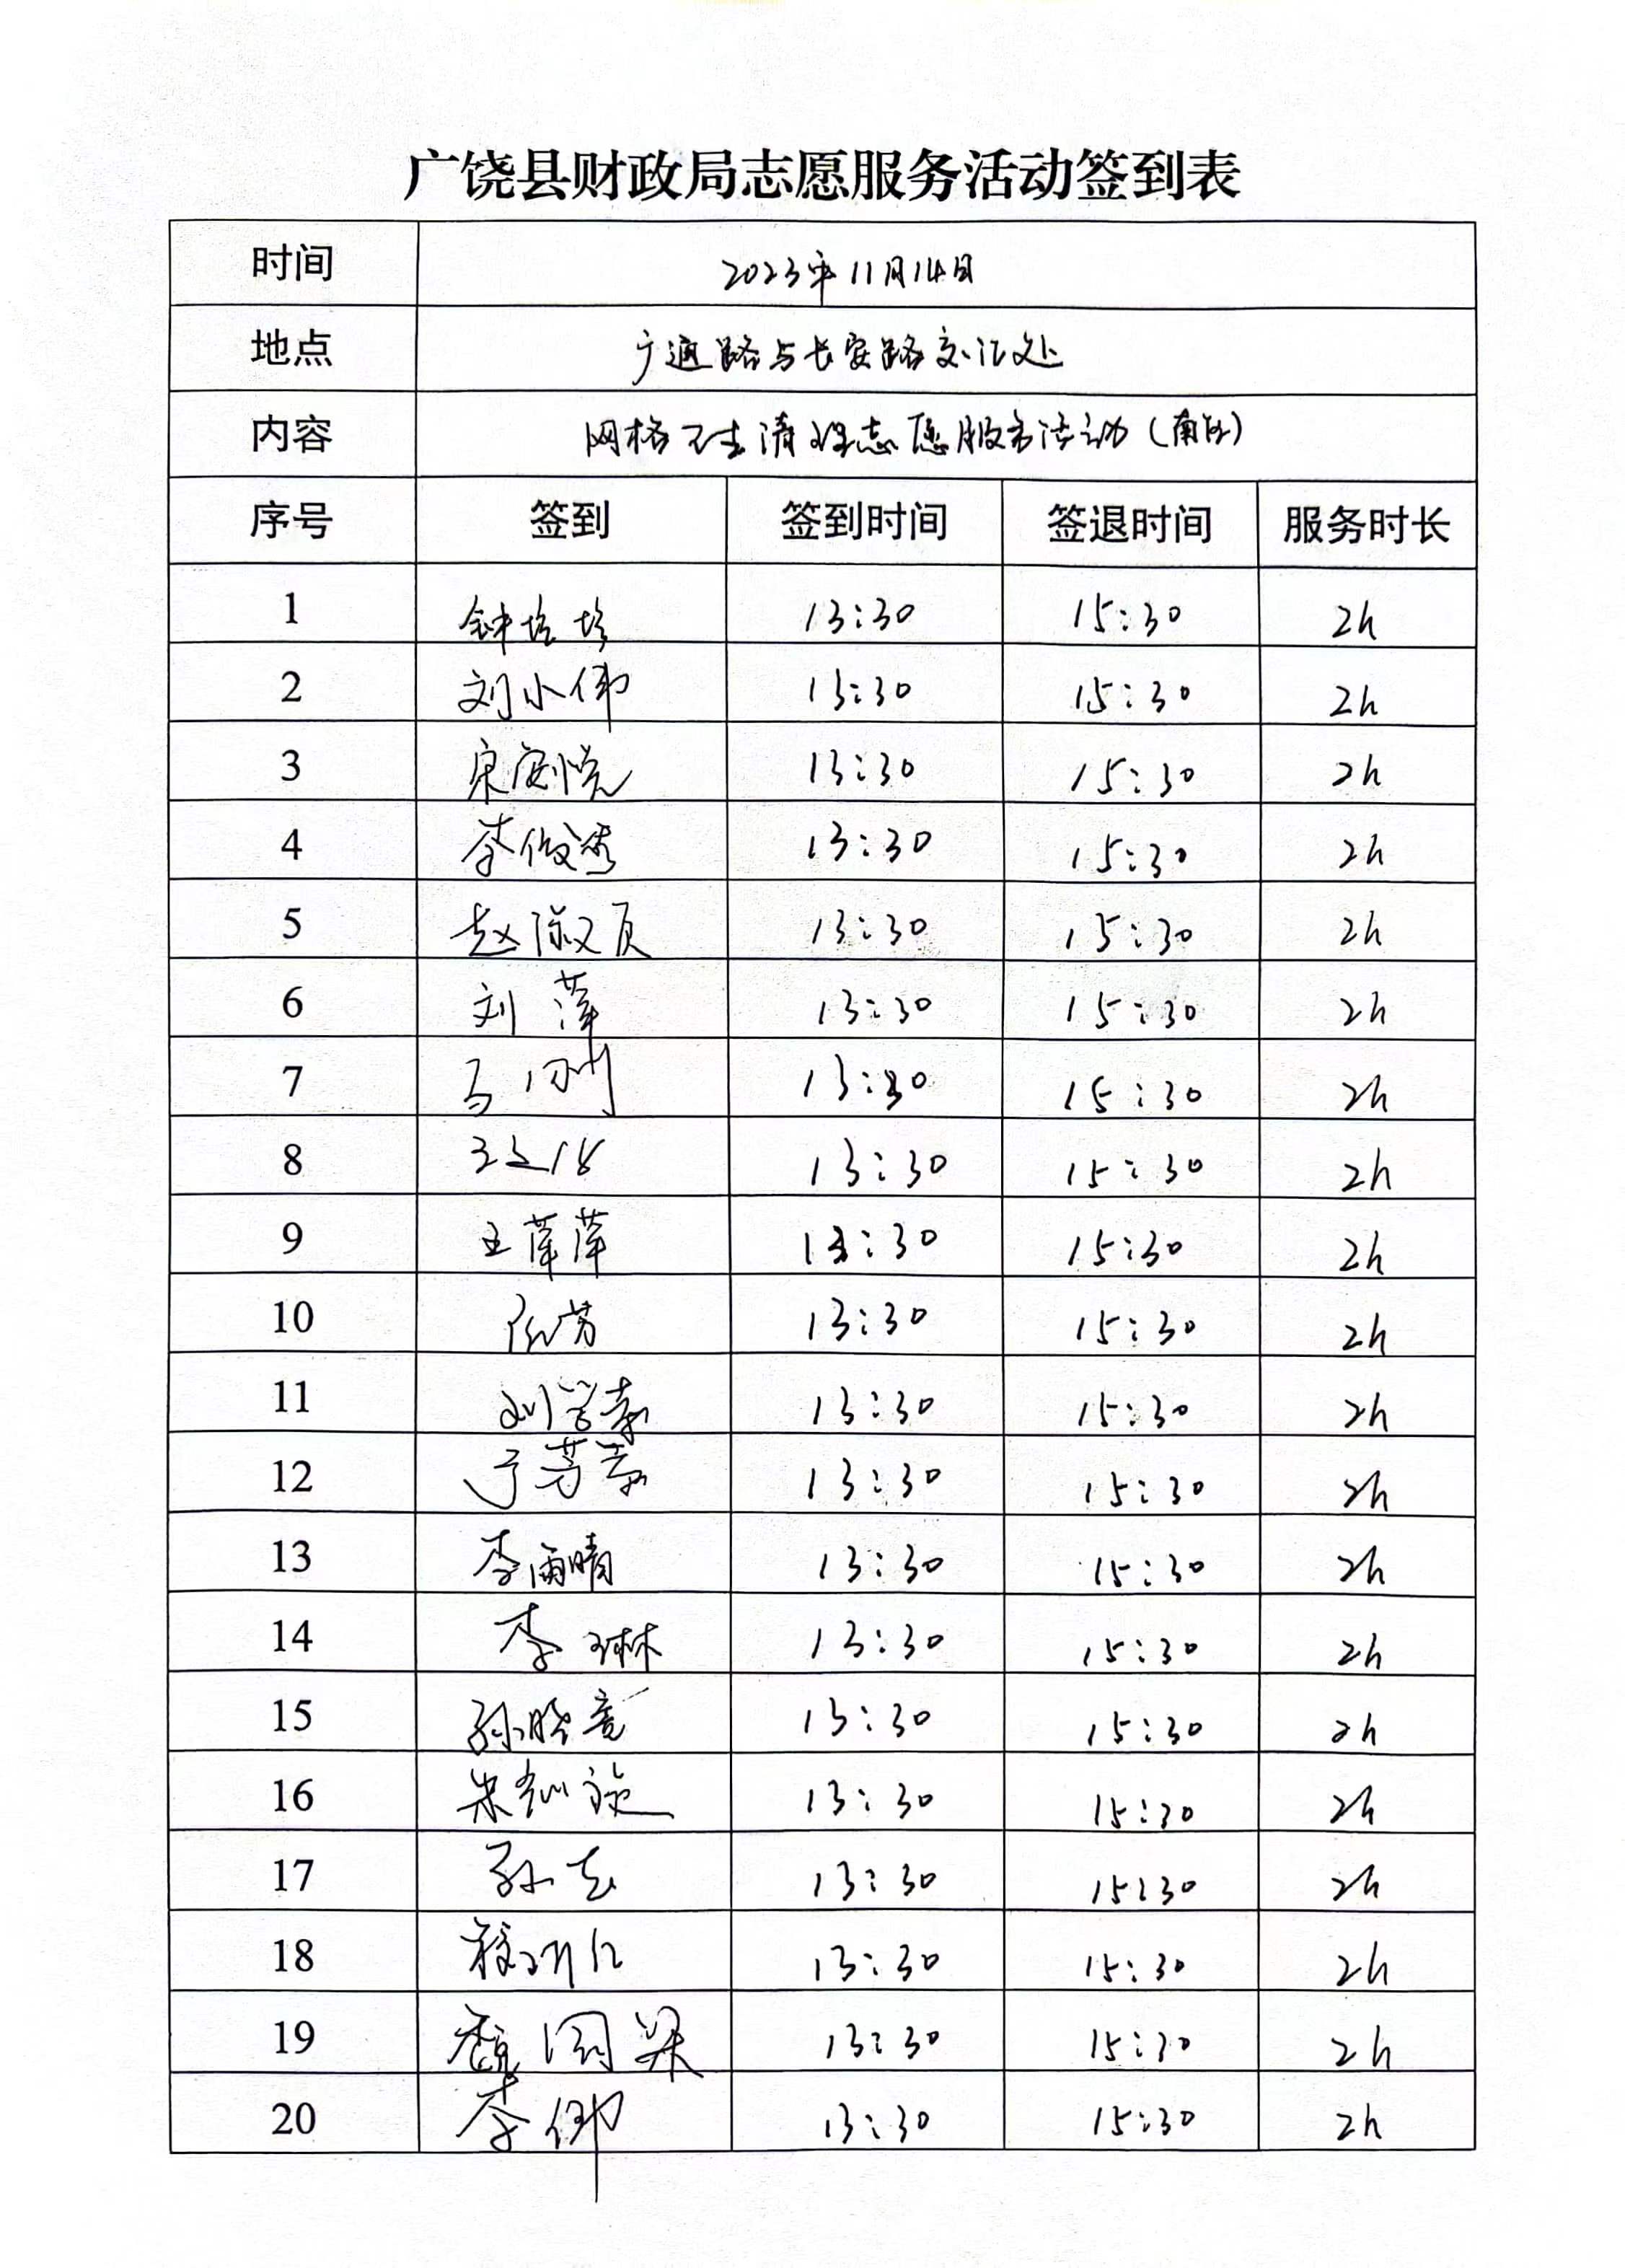 广饶县财政局志愿服务活动签到表
时间 2023年11月14日
地点 广通路与长安路交汇处
内容 网格卫生清理志愿服务活动（南段）
序号 签到 签到时间 签退时间 服务时长
1 钟培培 13:30 15:30 2h
2 刘小伟 13:30 15:30 2h
3 13:30 15:30 2h
4 李俊秀 13:30 15:30 2h
5 赵淑贞 13:30 15:30 2h
6 刘萍 13:30 15:30 2h
7 13:30 15:30 2h
8 13:30 15:30 2h
9 王萍萍 13:30 15:30 2h
10 13:30 15:30 2h
11 13:30 15:30 2h
12 13:30 15:30 2h
13 李雨晴 13:30 15:30 2h
14 李琳 13:30 15:30 2h
15 孙晓亮 13:30 15:30 2h
16 13:30 15:30 2h
17 13:30 15:30 2h
18 13:30 15:30 2h
19 13:30 15:30 2h
20 13:30 15:30 2h